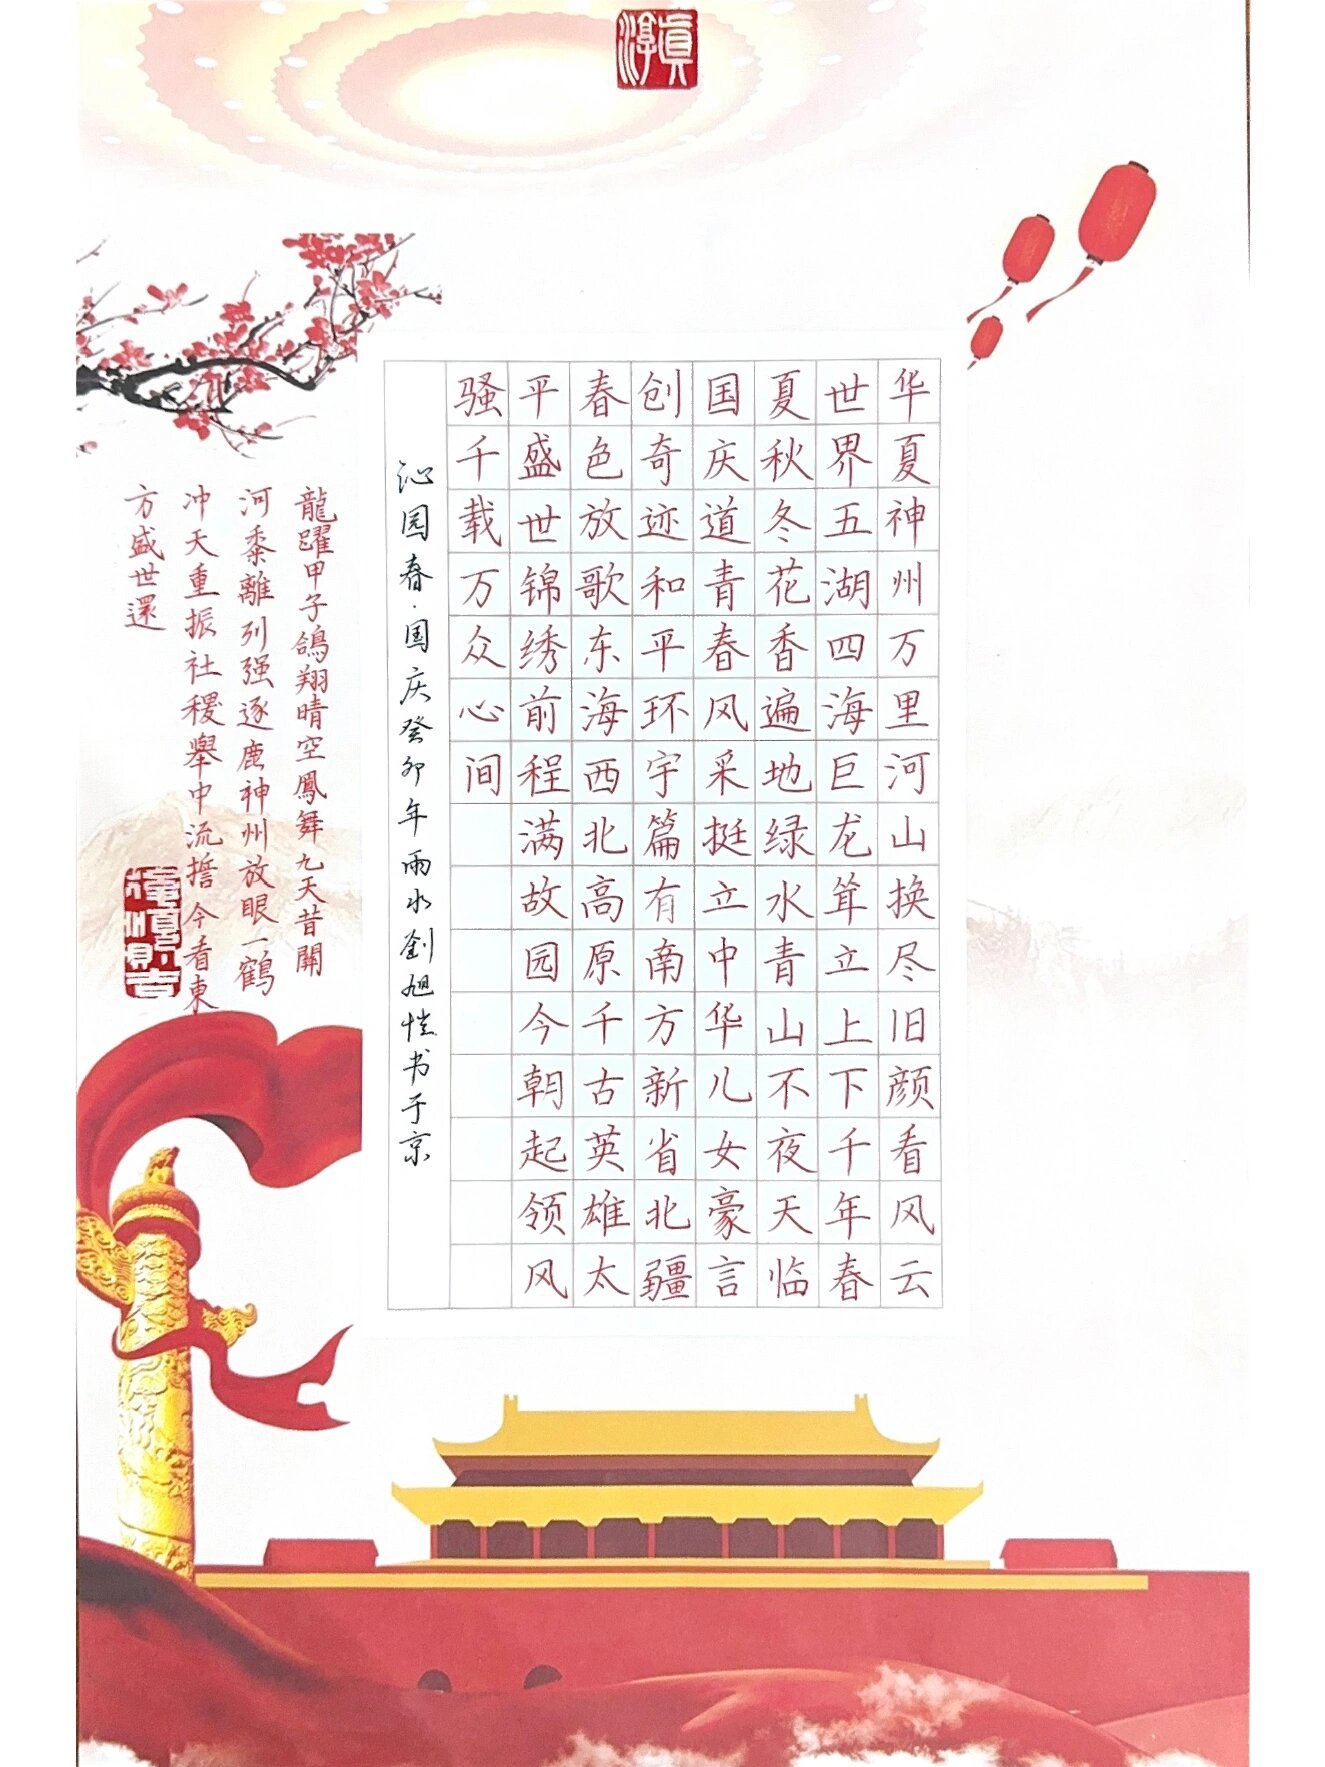 淳真
华夏神州万里河山换尽旧颜看风云
世界五湖四海巨龙耸立上下千年春
夏秋冬花香遍地绿水青山不夜天临
国庆道青春风采挺立中华儿女豪言
创奇迹和平环宇篇有南方新省北疆
春色放歌东海西北高原千古英雄太
平盛世锦绣前程满故园今朝起领风
骚千载万众心间
沁园春·国庆癸卯年雨水刘旭恺书于京
龍躍甲子鴿翔晴空鳳舞九天昔關
河黍離列强逐鹿神州放眼一鶴
冲天重振社稷舉中流擔今看東
方盛世還